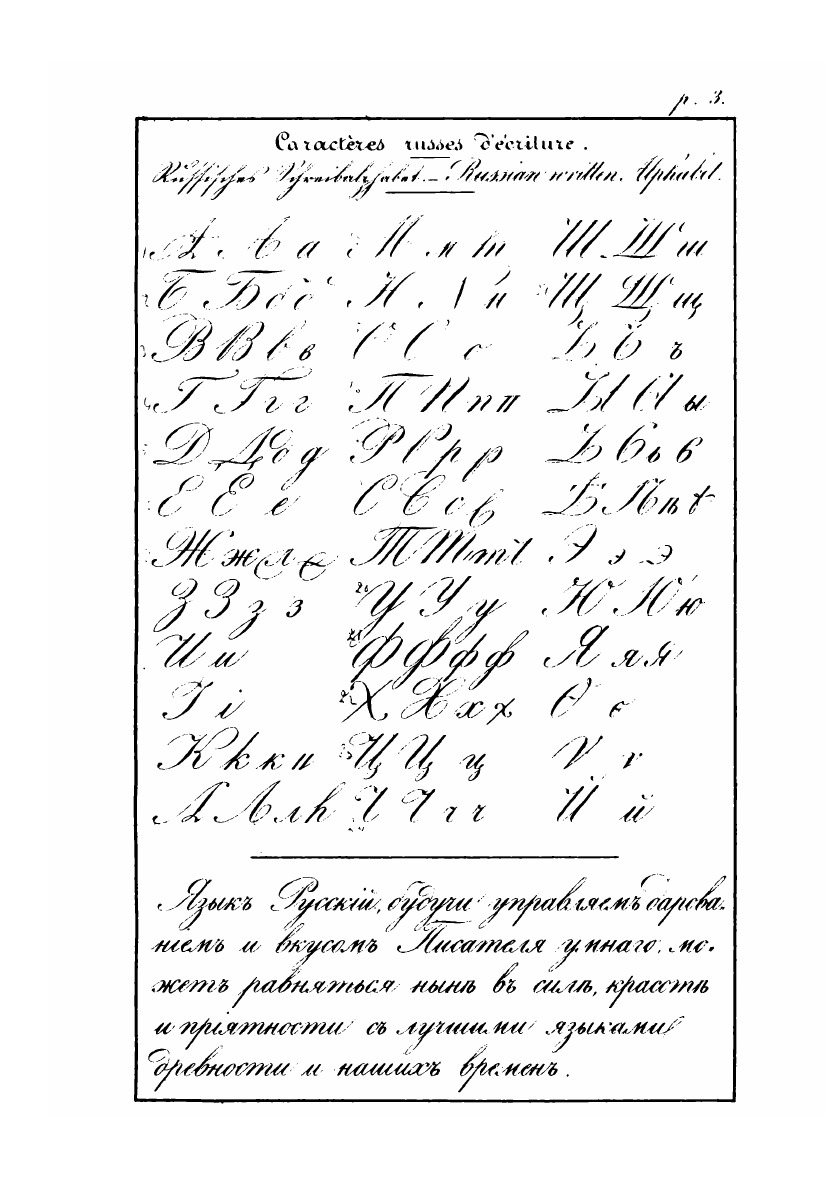 p. 3.
Caractères russes d'écriture.
Russisches Schreibalphabet. – Russian written Alphabet.
А А а М м т Ш Ш ш
Б Б б б Н N н Щ Щ щ
В В в в О О о Ъ Ъ ъ
Г Г г г П П п п Ы Ы ы
Д Д д д Р Р р р Ь Ь ь ь
Е Е е С С с в Ѣ Ѣ ѣ ѣ
Ж ж ж ж Т Т т t Э э э
З З з з 20 У У у Ю Ю ю
И и 21 Ф Ф ф ф Я я я
І і 22 Х Х х х Ѳ ѳ
К к к к 23 Ц Ц ц Ѵ ѵ
Л Л л h Ч Ч ч ч Й й
Языкъ Русскій, будучи управляемъ дарова-
ніемъ и вкусомъ Писателя умнаго, мо-
жетъ равняться нынѣ въ силѣ, красотѣ
и пріятности съ лучшими языками
древности и нашихъ временъ.